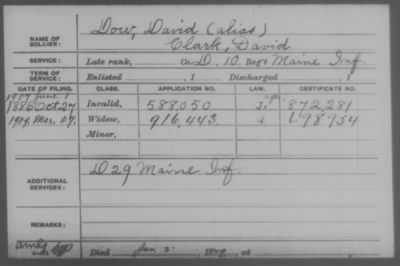 NAME OF SOLDIER: Dow, David (alias)
Clark, David
SERVICE: Late rank, Co. D, 10 Reg't Maine Inf.
TERM OF SERVICE: Enlisted , 1 Discharged , 1
DATE OF FILING. CLASS. APPLICATION NO. LAW. CERTIFICATE NO.
1886 Oct. 27 Invalid, 588,050 872,281
Widow, 916,443 a 698954
Minor,
ADDITIONAL SERVICES: D 29 Maine Inf.
REMARKS:
Died Jan at